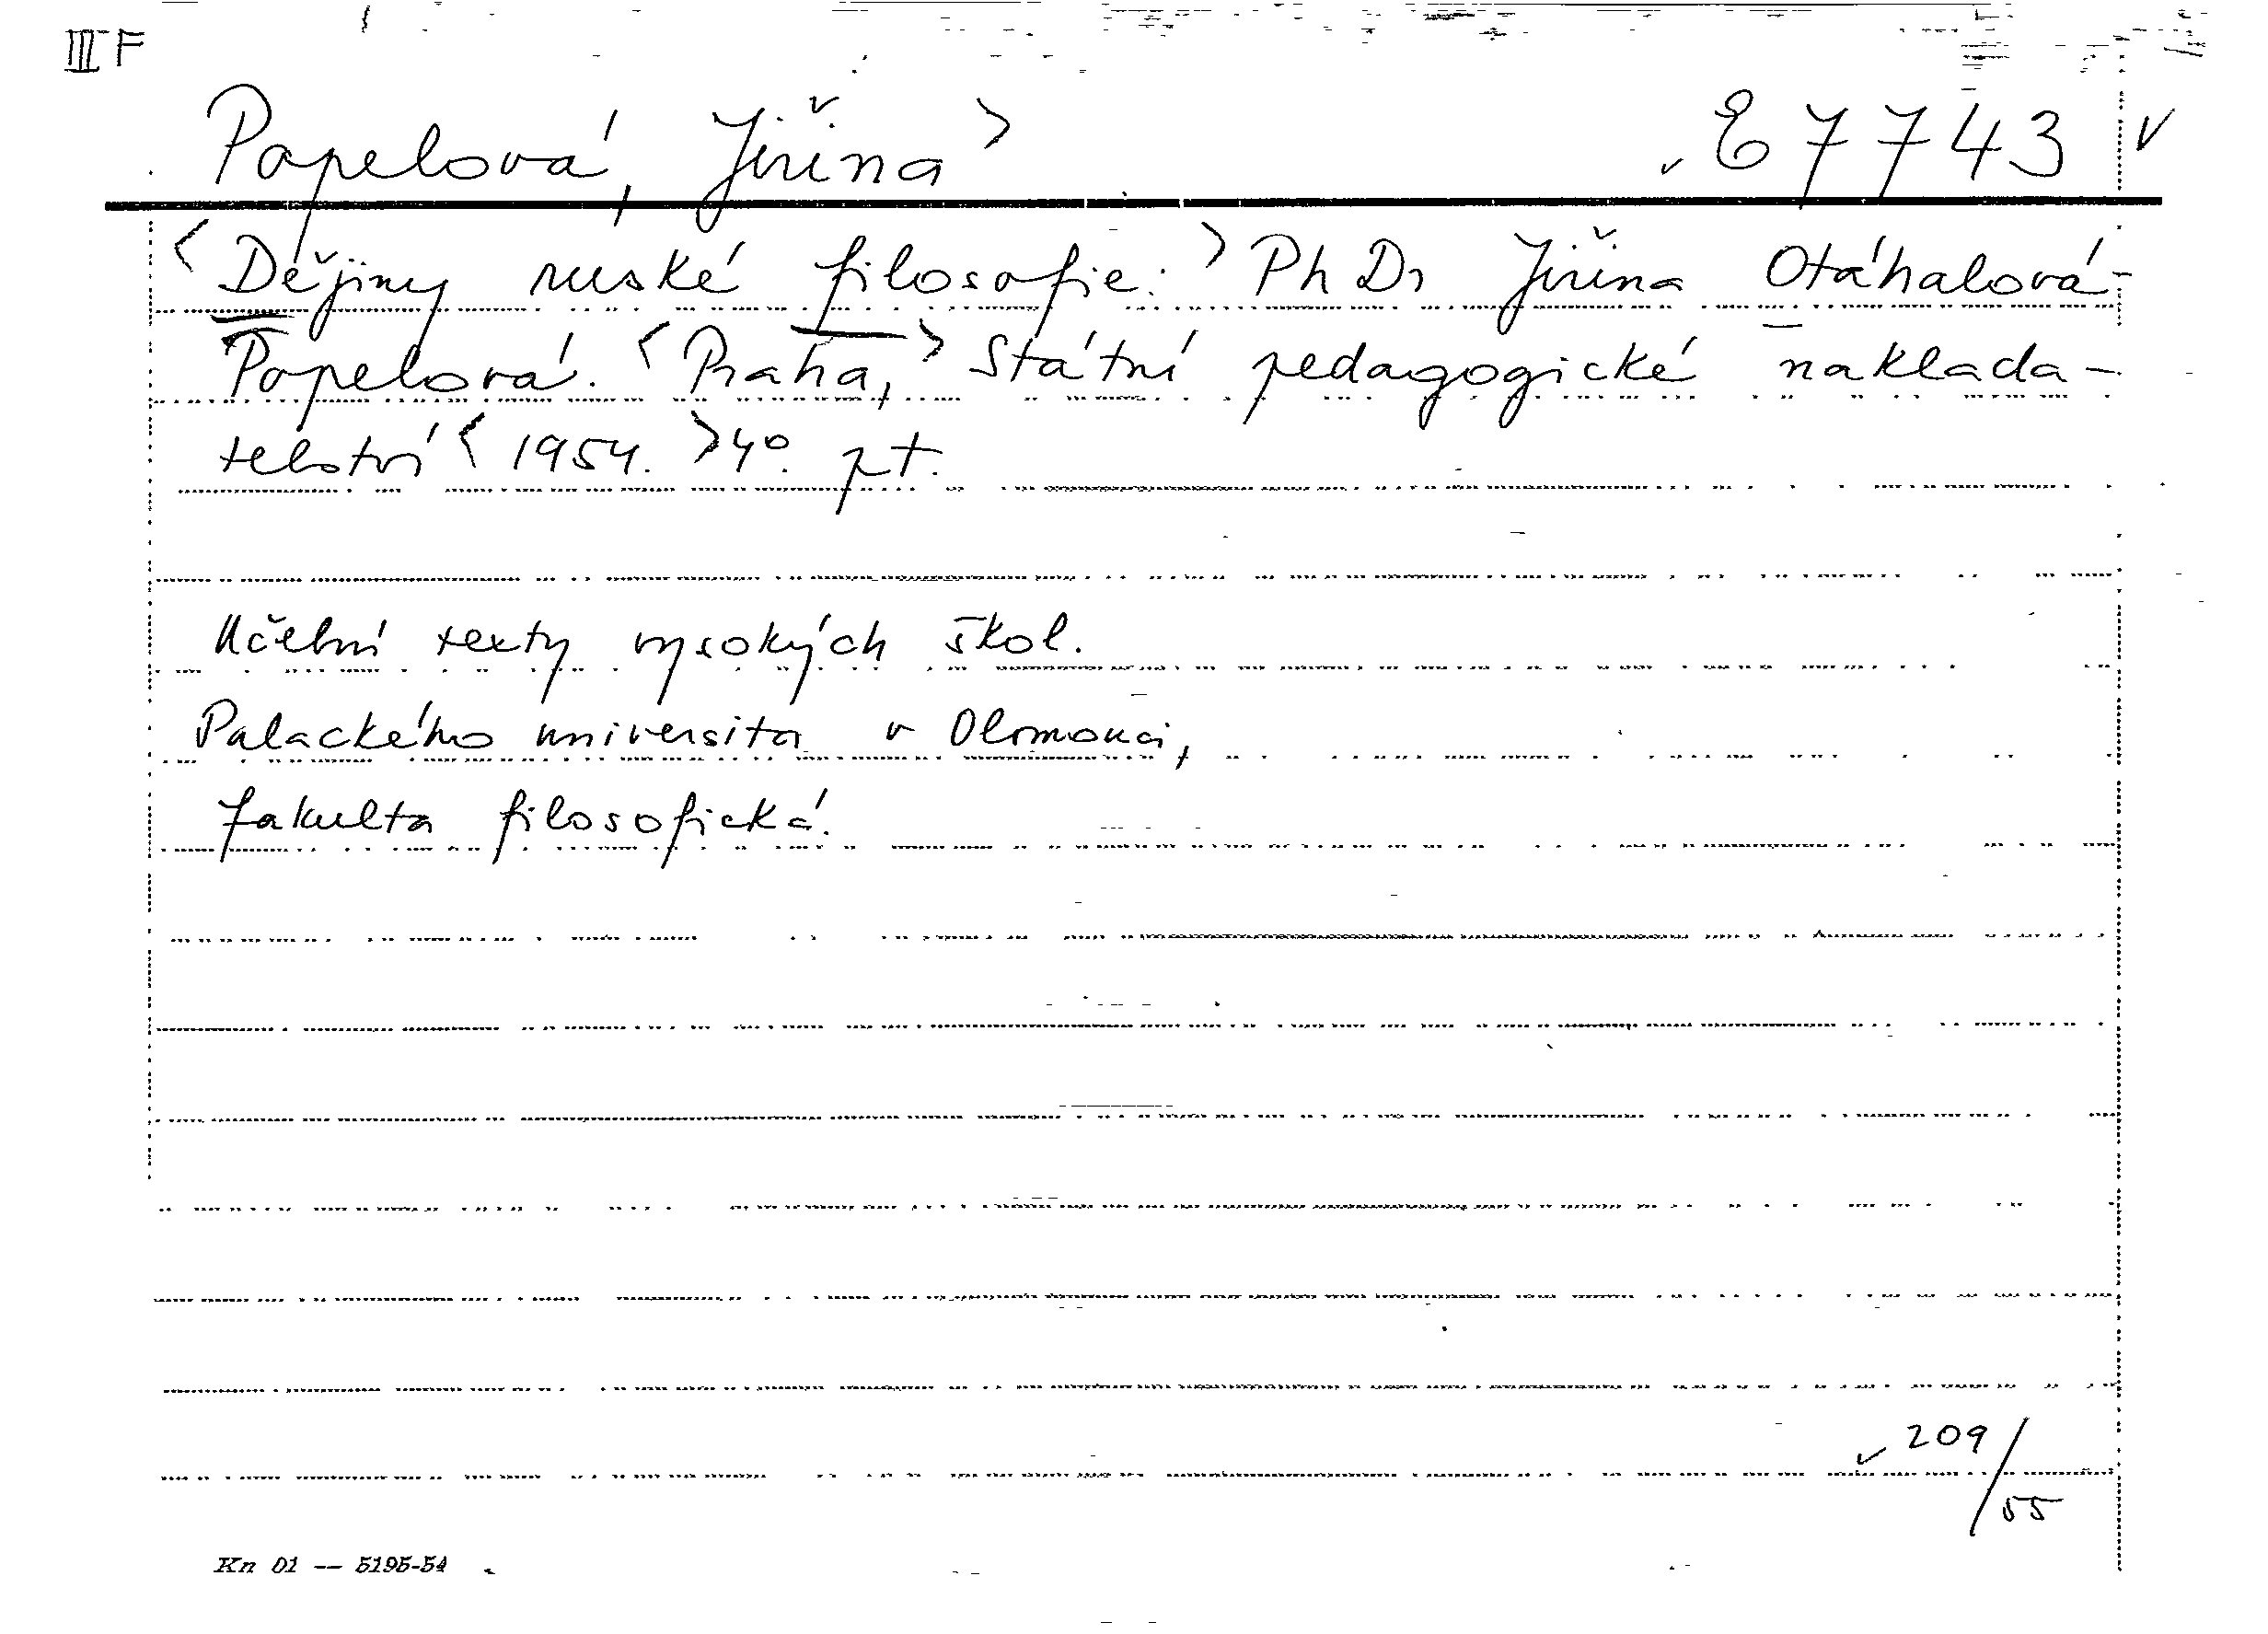 III F
Popelová, Jiřina > E 7743 v
<Dějiny ruské filosofie.> PhDr Jiřina Otáhalová-
Popelová. <Praha,> Státní pedagogické naklada-
telství <1954.> 4°. pt.
Učební texty vysokých škol.
Palackého universita v Olomouci,
fakulta filosofická.
209/55
Kn 01 -- 5195-54